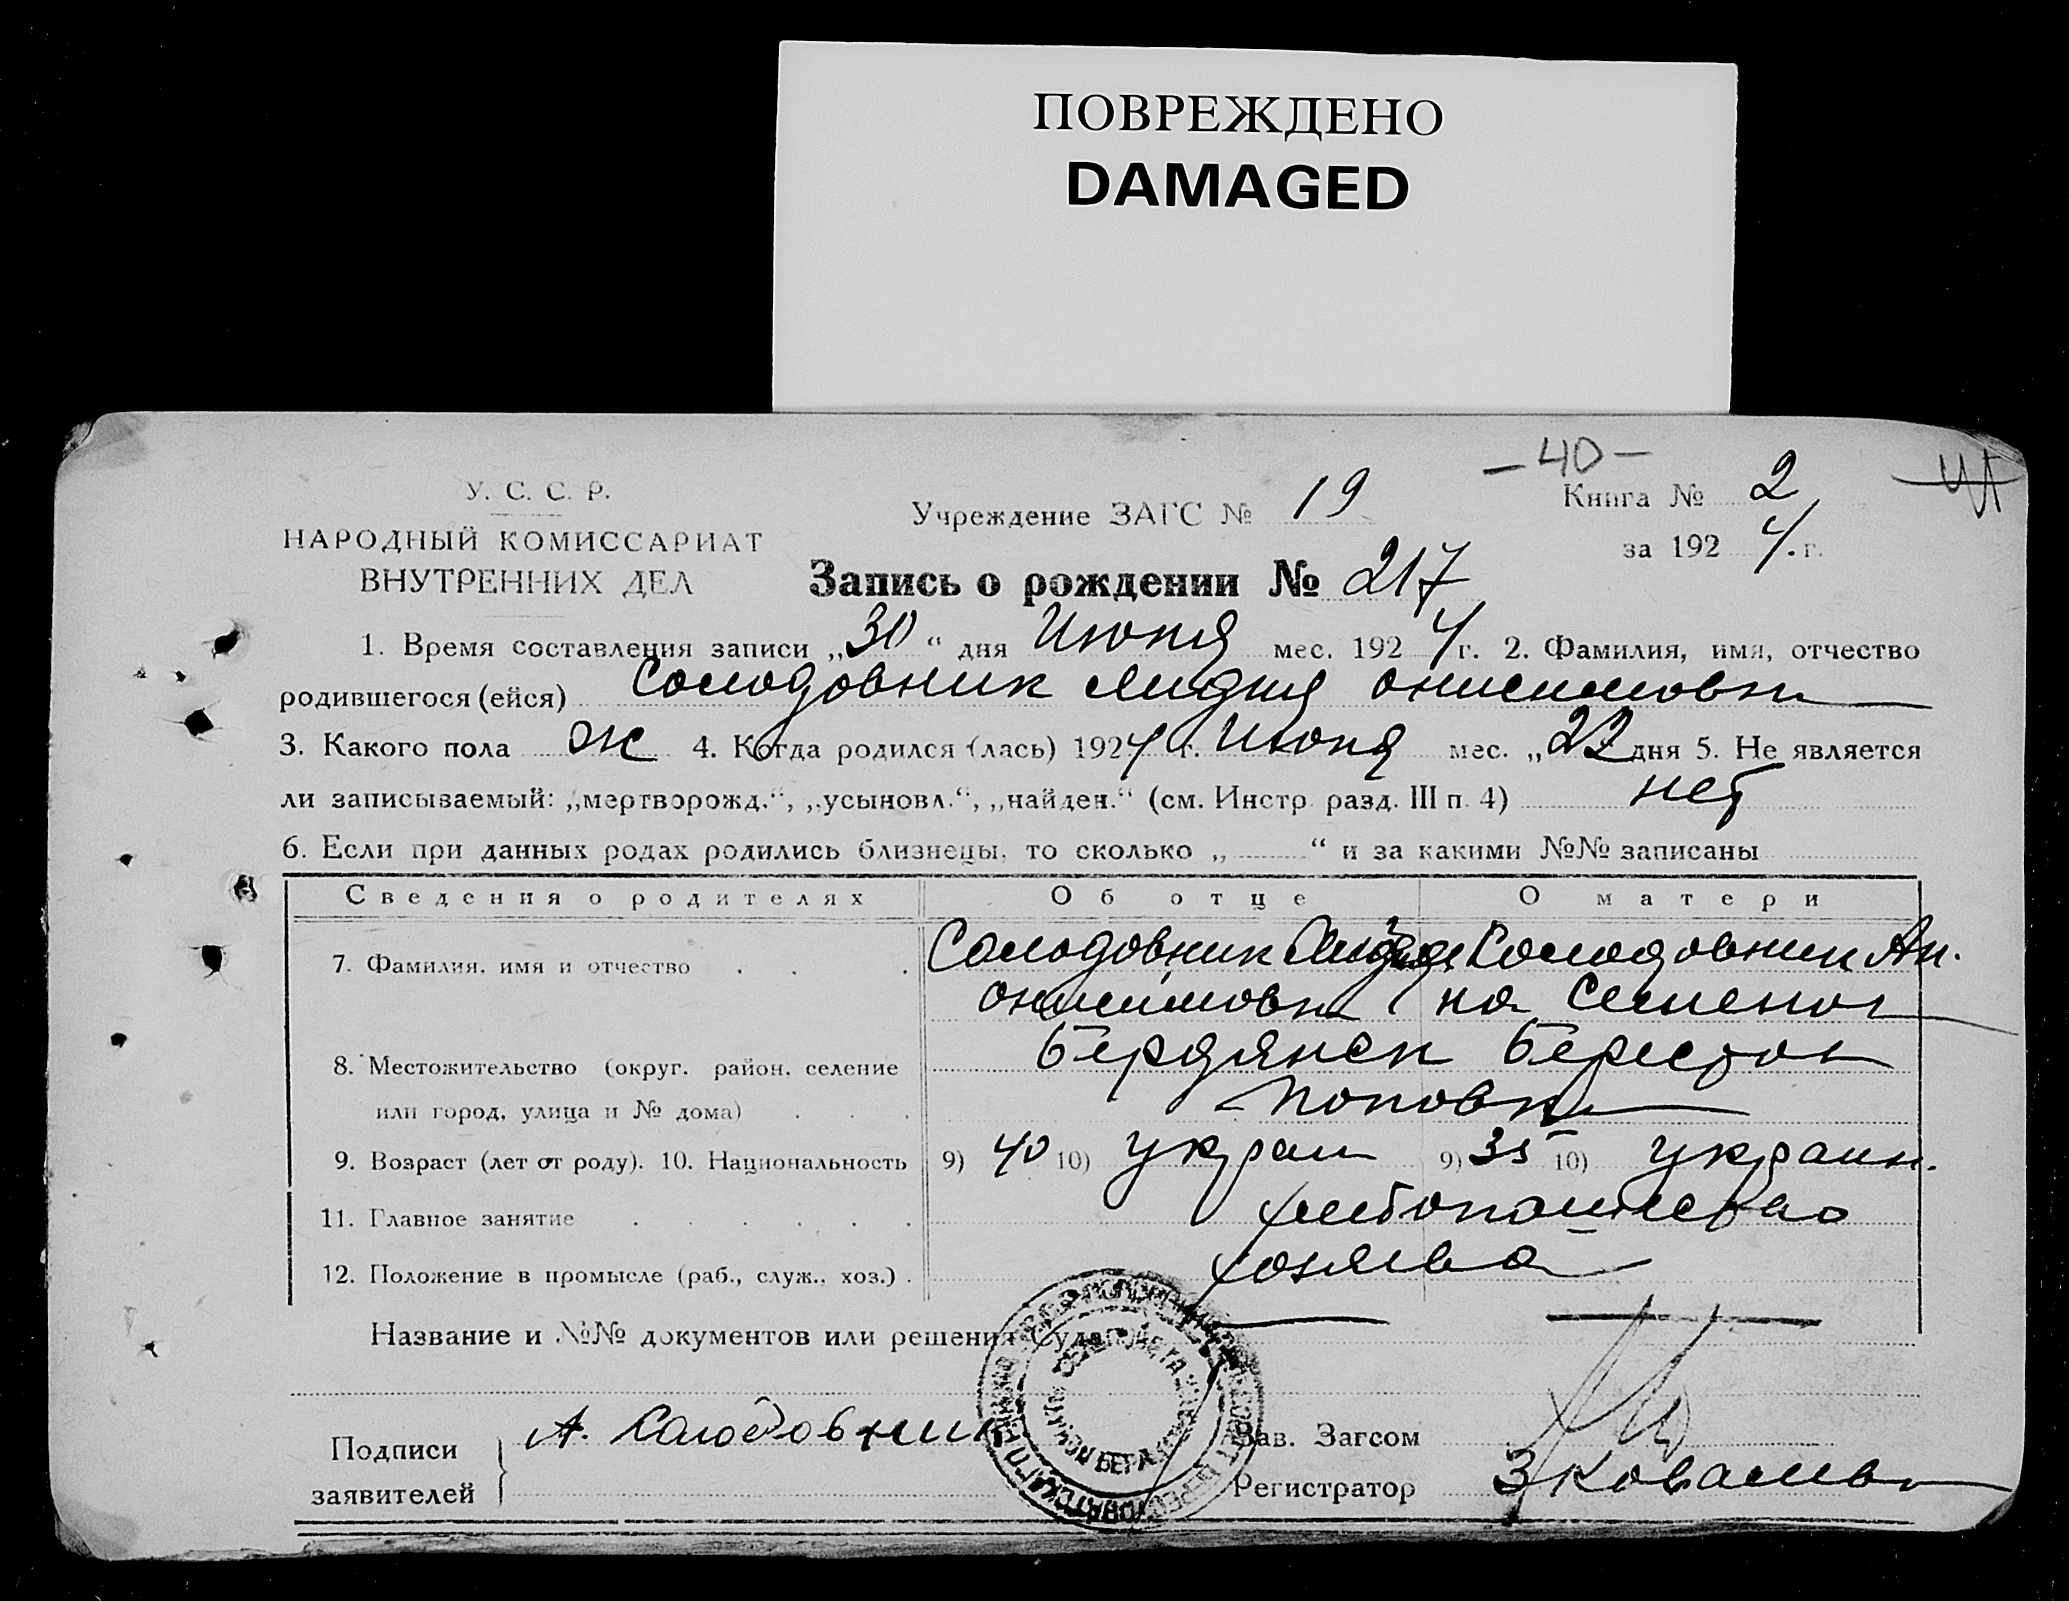 ПОВРЕЖДЕНО
DAMAGED
- 40 -
У. С. С. Р.
НАРОДНЫЙ КОМИССАРИАТ
ВНУТРЕННИХ ДЕЛ
Учреждение ЗАГС № 19
Книга № 2
за 1924 г.
Запись о рождении № 217
1. Время составления записи „30“ дня Июня мес. 1924 г. 2. Фамилия, имя, отчество
родившегося (ейся) Солодовник Лидия Онисимовн
3. Какого пола ж 4. Когда родился (лась) 1924 г. Июня мес. „22 дня 5. Не является
ли записываемый: „мертворожд.“, „усыновл.“, „найден.“ (см. Инстр. разд. III п. 4) нет
6. Если при данных родах родились близнецы, то сколько „ “ и за какими №№ записаны
Сведения о родителях Об отце О матери
7. Фамилия, имя и отчество . . . Солодовник Солодовник Ан.
онисимовн на Семенов
8. Местожительство (округ. район. селение Бердянск Берестов
или город, улица и № дома) . . . Поповк
9. Возраст (лет от роду). 10. Национальность 9) 40 10) украин 9) 35 10) украин.
11. Главное занятие . . . . . . хлебопашество
12. Положение в промысле (раб., служ., хоз.) . хозяева
Название и №№ документов или решения Суда
Подписи
заявителей
А. Солодовник
Зав. Загсом
Регистратор З Ковалев